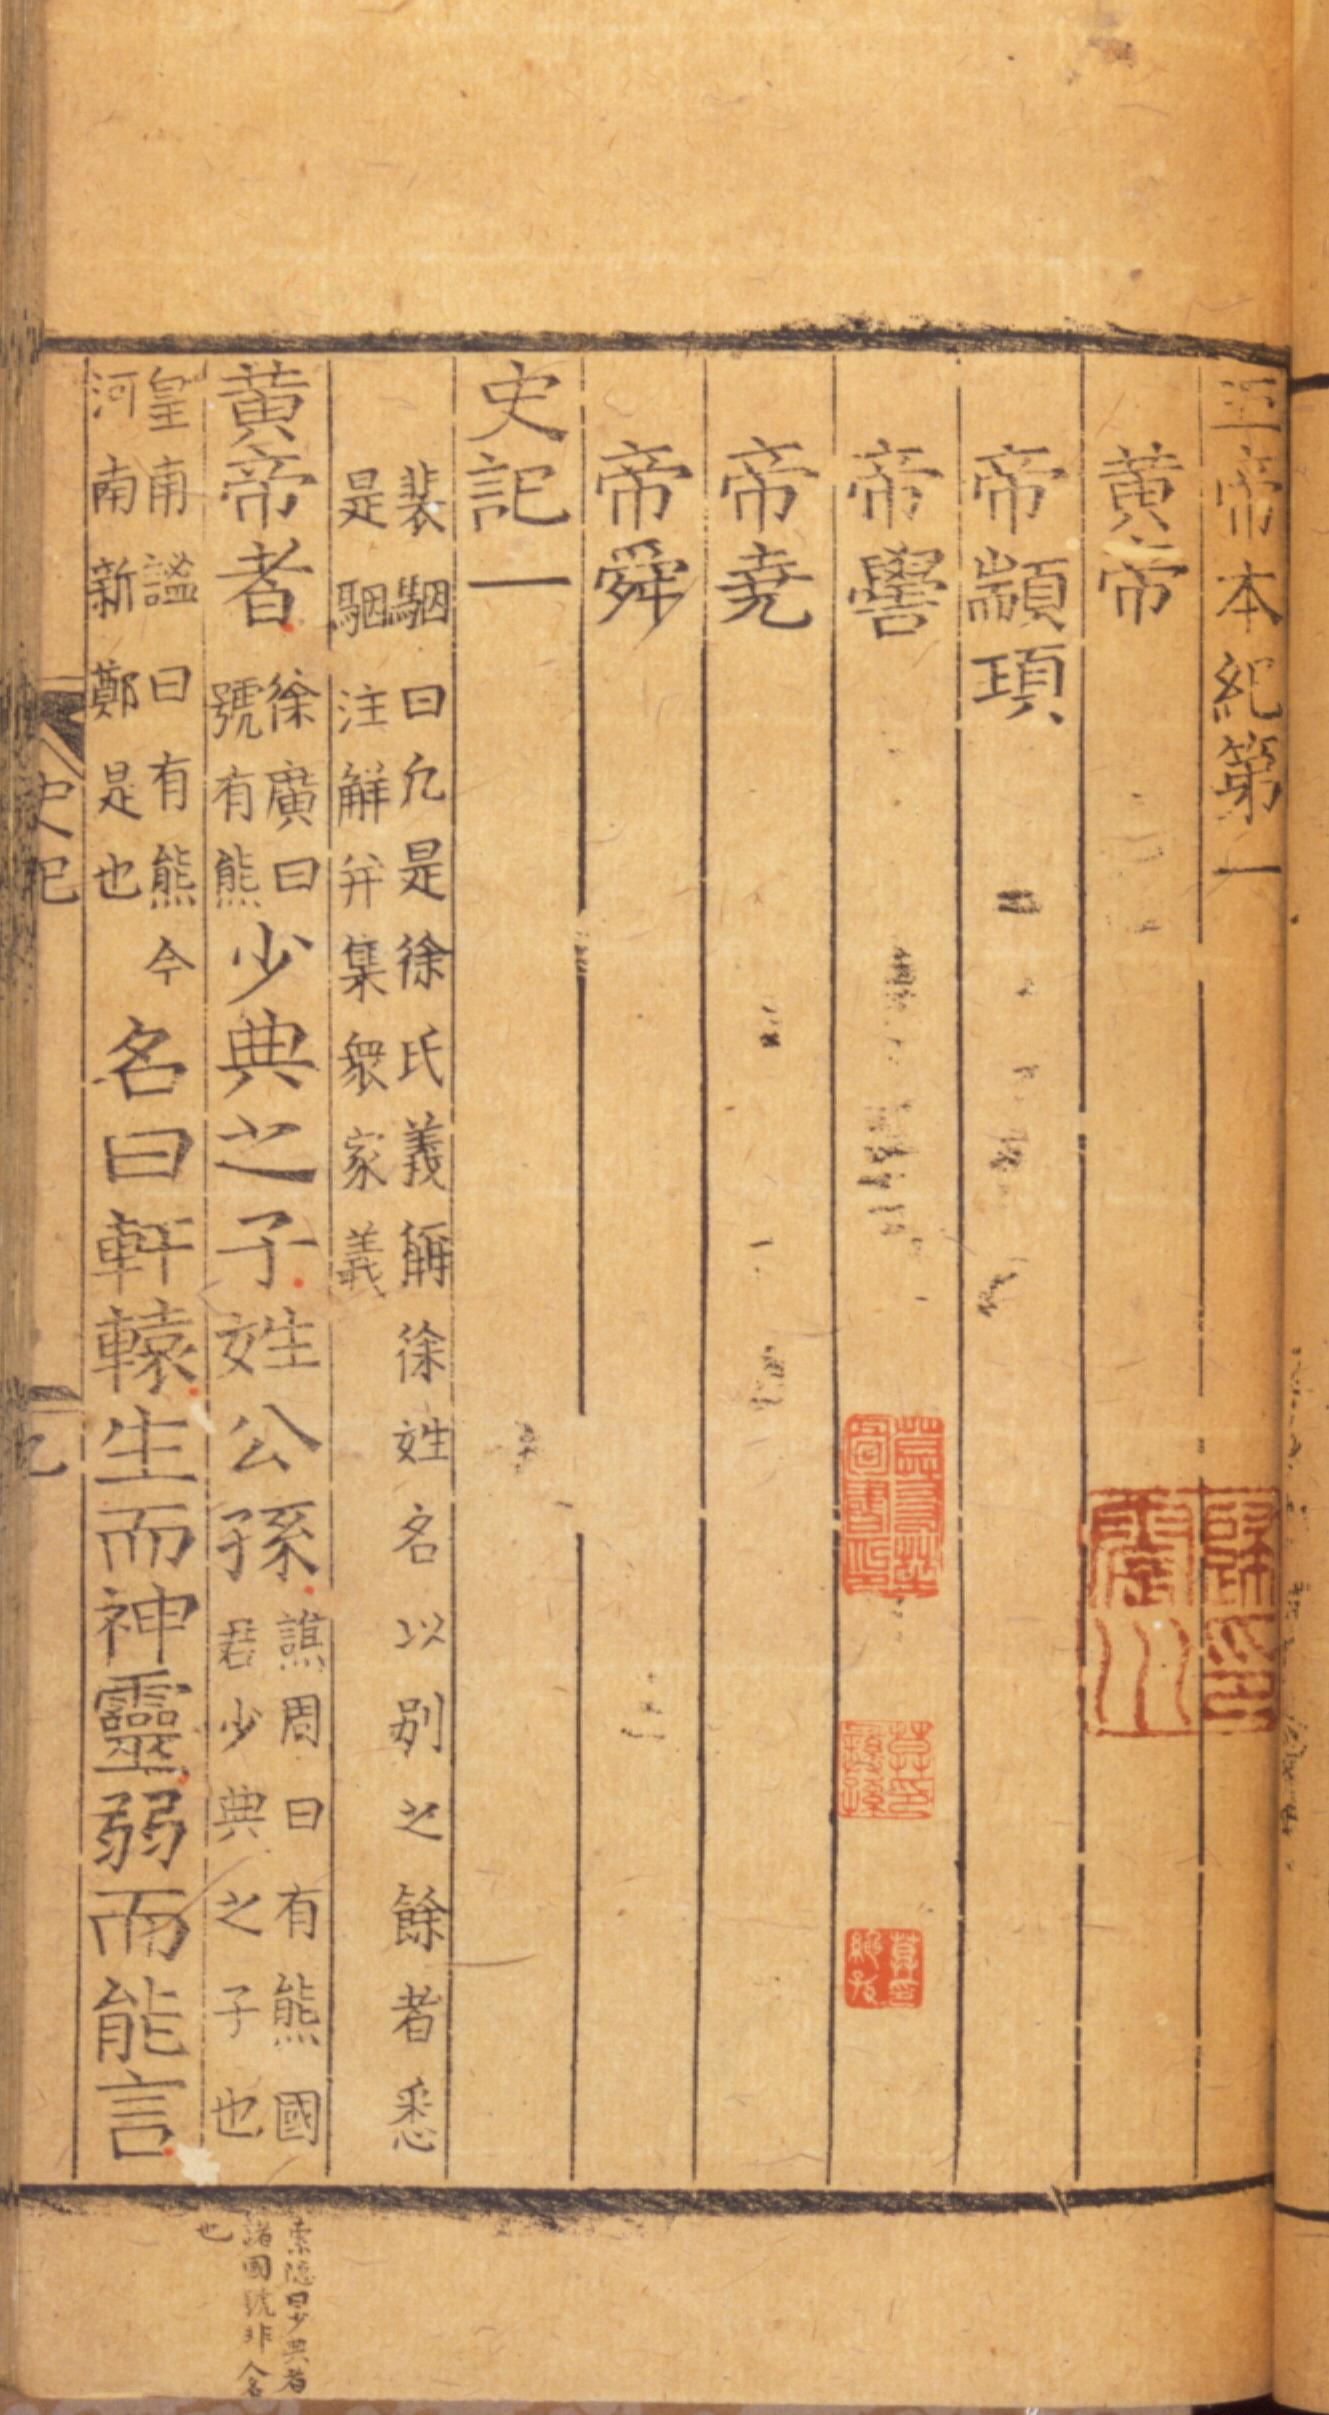 五帝本紀第一
黄帝
帝顓頊
帝嚳
帝堯
帝舜
史記一
裴駰曰凢是徐氏義稱徐姓名以别之餘者悉
是駰注解并集衆家義
黄帝者
徐廣曰
號有熊
少典之子姓公孫
譙周曰有熊國
君少典之子也
皇甫謐曰有熊今
河南新鄭是也
名曰軒轅生而神靈弱而能言
史記
索隱曰少典者
諸國號非人名
也